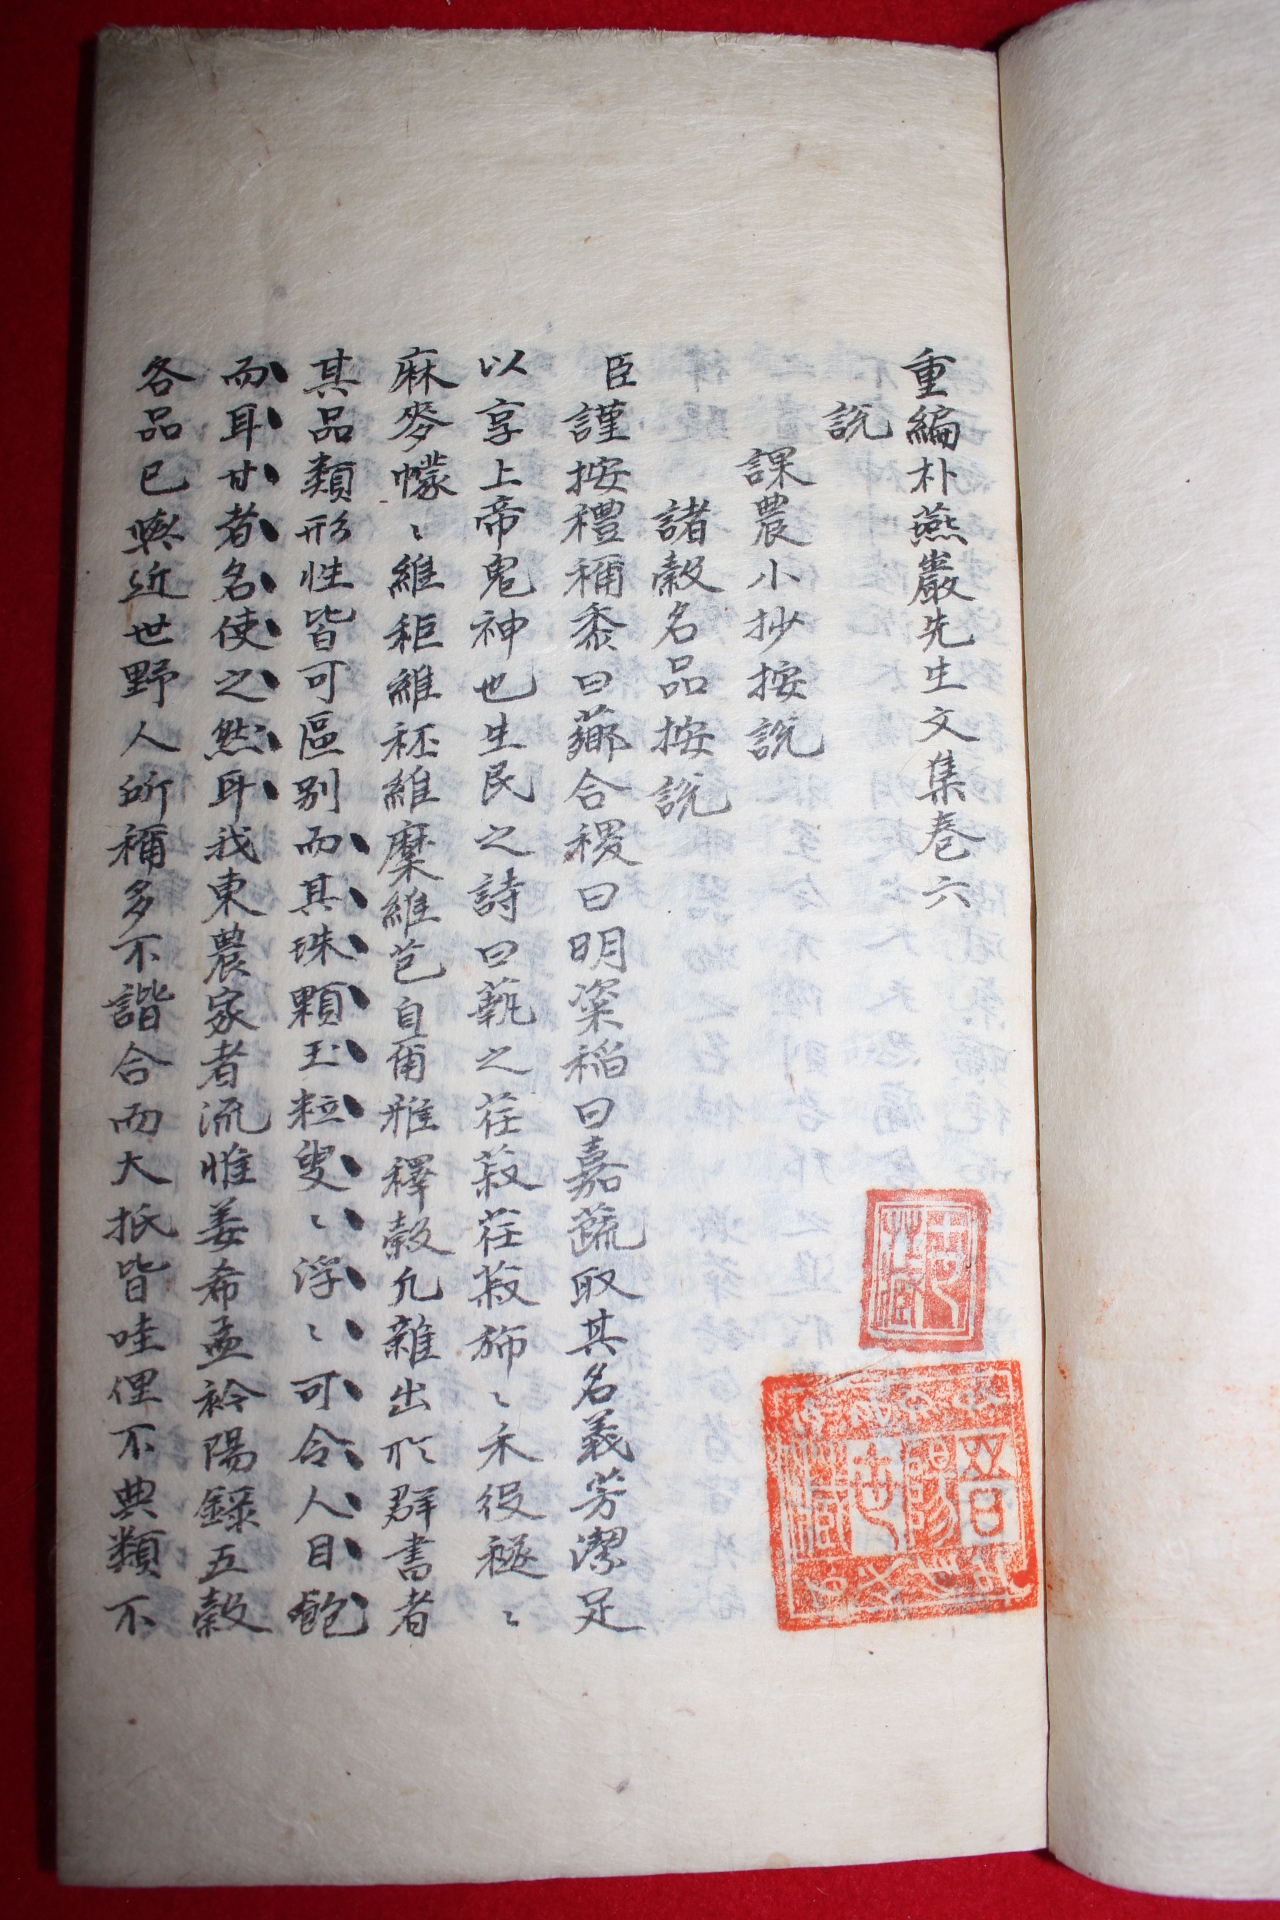 重編朴燕巖先生文集卷六
說
課農小抄按說
諸穀名品按說
臣謹按禮稱黍曰薌合稷曰明粢稻曰嘉蔬取其名義芳潔足
以享上帝鬼神也生民之詩曰蓺之荏菽荏菽旆〻禾役穟〻
麻麥幪〻維秬維秠維穈維芑自爾雅釋穀凡雜出於群書者
其品類形性皆可區別而其珠顆玉粒叟〻浮〻可令人目飽
而耳甘者名使之然耳我東農家者流惟姜希孟衿陽錄五穀
各品已與近世野人所稱多不諧合而大抵皆哇俚不典類不